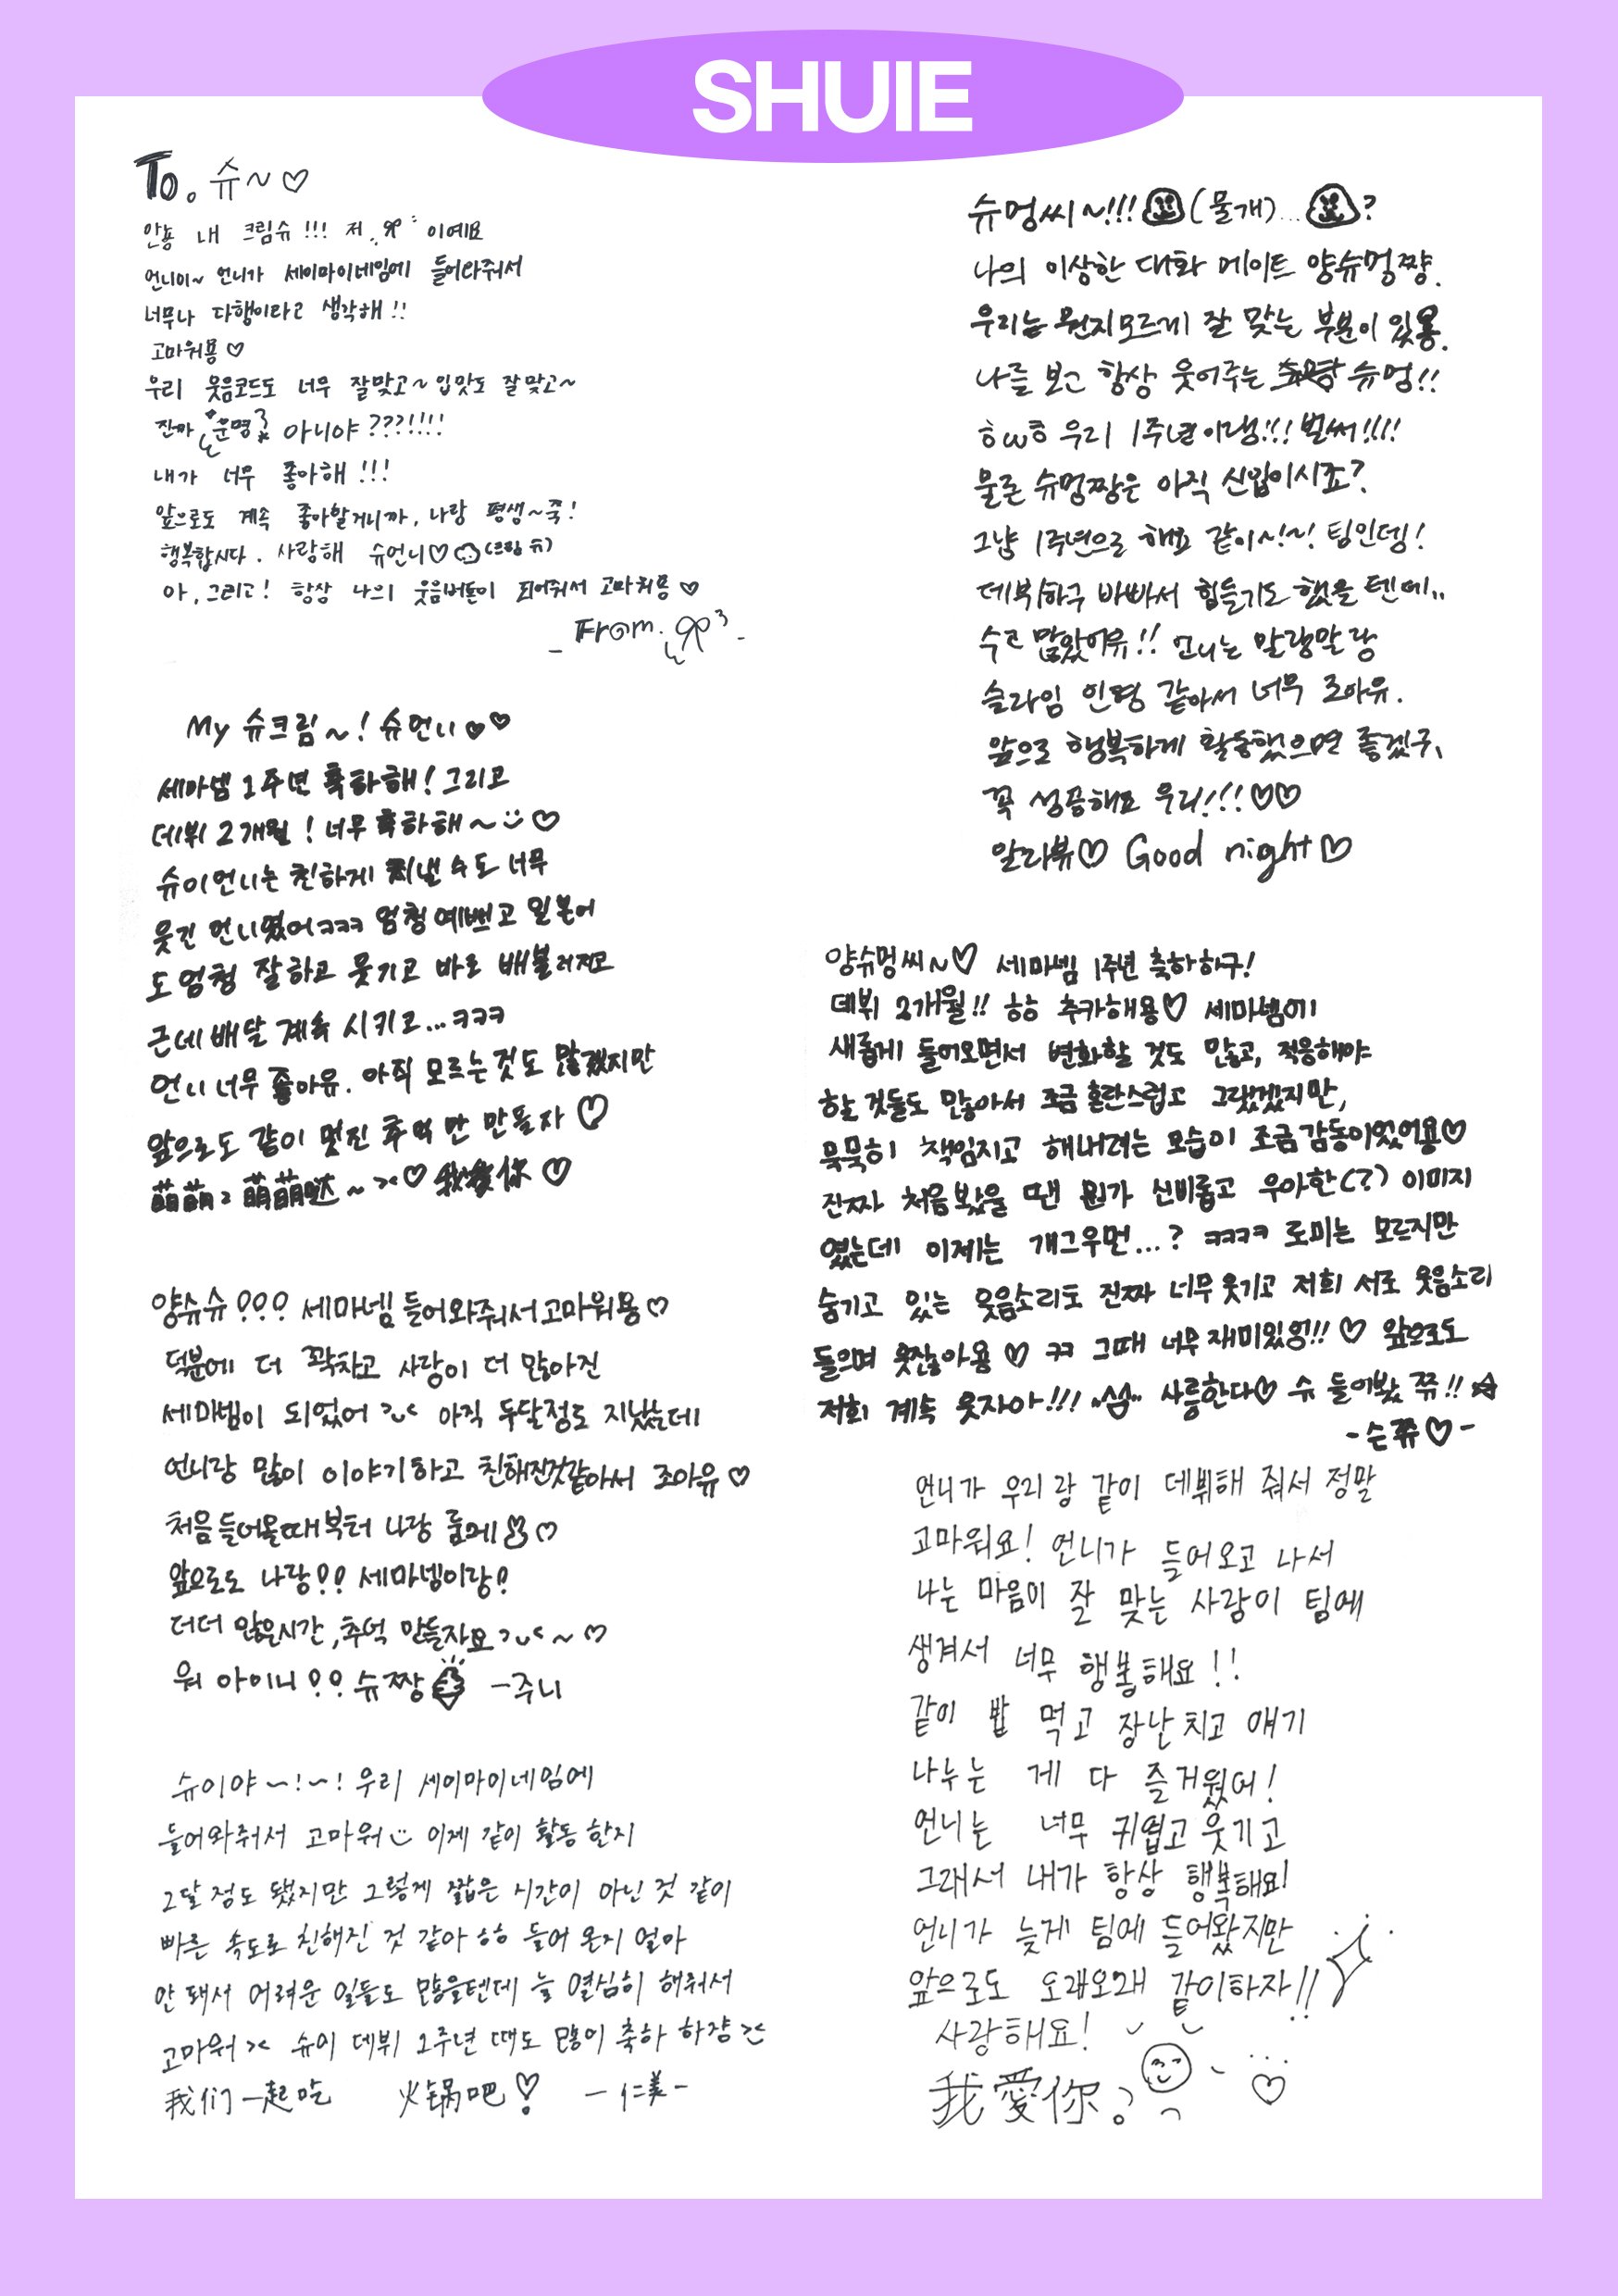 SHUIE
To. 슈~♡
안뇽 내 크림슈!!! 저 이예요
언니이~ 언니가 세이마이네임에 들어와줘서
너무나 다행이라고 생각해!!
고마워용♡
우리 웃음코드도 너무 잘맞고~입맛도 잘맞고~
진짜 운명 아니야???!!!!
내가 너무 좋아해!!!
앞으로도 계속 좋아할거니까, 나랑 평생~죽!
행복합시다. 사랑해 슈언니♡(크림 슈)
아, 그리고! 항상 나의 웃음버튼이 되어줘서 고마워용♡
- From. -
My 슈크림~! 슈언니♡♡
세마넴 1주년 축하해! 그리고
데뷔 2개월! 너무 축하해~♡
슈이언니는 친하게 지낼 수도 너무
웃긴 언니였어ㅋㅋㅋ 엄청 예쁘고 일본어
도 엄청 잘하고 웃기고 바로 배불러지고
근데 배달 계속 시키고...ㅋㅋㅋ
언니 너무 좋아유. 아직 모르는것도 많겠지만
앞으로도 같이 멋진 추억만 만들자♡
萌萌? 萌萌哒~><♡ 我爱你♡
양슈슈??? 세마넴 들어와줘서고마워용♡
덕분에 더 꽉차고 사랑이 더 많아진
세마넴이 되었어 아직 두달정도 지났는데
언니랑 많이 이야기하고 친해진것같아서 조아유♡
처음들어올때부터 나랑 룸메♡
앞으로도 나랑?? 세마넴이랑?
더더 많은시간,추억 만들자요~♡
워 아이니?? 슈짱 -주니
슈이야~!~! 우리 세이마이네임에
들어와줘서 고마워 이제 같이 활동 한지
2달 정도 됐지만 그렇게 짧은 시간이 아닌 것 같이
빠른 속도로 친해진 것 같아ㅎㅎ 들어 온지 얼마
안 돼서 어려운 일들도 많을텐데 늘 열심히 해줘서
고마워>< 슈이 데뷔 1주년 때도 많이 축하 하쟝><
我们一起吃 火锅吧♡ -仁美-
슈멍씨~!!!(물개)...?
나의 이상한 대화 메이트 양슈멍쨩.
우리는 뭔지모르게 잘 맞는 부분이 있용.
나를 보고 항상 웃어주는 슈멍!!
ㅎωㅎ 우리 1주년이댕!!! 벌써!!!!
물론 슈멍짱은 아직 신입이시죠?
그냥 1주년으로 해요 같이~!~! 팀인뎅!
데뷔하구 바빠서 힘들기도 했을 텐데..
수고 많았어유!! 언니는 말랑말랑
슬라임 인형 같아서 너무 조아유.
앞으로 행복하게 활동했으면 좋겠구,
꼭 성공해요 우리!!!♡♡
알라뷰♡ Good night♡
양슈멍씨~♡ 세마넴 1주년 축하하구!
데뷔 2개월!! ㅎㅎ 추카해용♡ 세마넴에
새롭게 들어오면서 변화할 것도 많고, 적응해야
할 것들도 많아서 조금 혼란스럽고 그랬겠지만,
묵묵히 책임지고 해내려는 모습이 조금감동이었어용♡
진짜 처음봤을 땐 뭔가 신비롭고 우아한(?) 이미지
였는데 이제는 개그우먼...? ㅋㅋㅋㅋ 로미는 모르지만
숨기고 있는 웃음소리도 진짜 너무웃기고 저희 서로 웃음소리
들으며 웃잖아용♡ ㅋㅋ 그때 너무재미있엉!!♡ 앞으로도
저희 계속 웃자아!!! 사릉한다♡ 슈 들어봤 쮸!!☆
-슨쮸♡-
언니가 우리랑 같이 데뷔해 줘서 정말
고마워요! 언니가 들어오고 나서
나는 마음이 잘 맞는 사람이 팀에
생겨서 너무 행복해요!!
같이 밥 먹고 장난치고 얘기
나누는 게 다 즐거웠어!
언니는 너무 귀엽고 웃기고
그래서 내가 항상 행복해요!
언니가 늦게 팀에 들어왔지만
앞으로도 오래오래 같이하자!!
사랑해요!
我愛你。